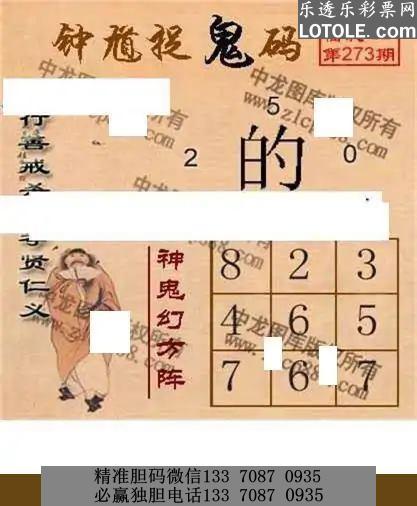 乐透乐彩票网
LOTOLE.COM
钟馗捉鬼码
第273期
中龙图库版权所有
5
2
的
0
行善戒
贤仁义
神鬼幻方阵
8 2 3
4 6 5
7 6 7
精准胆码微信133 7087 0935
必赢独胆电话133 7087 0935